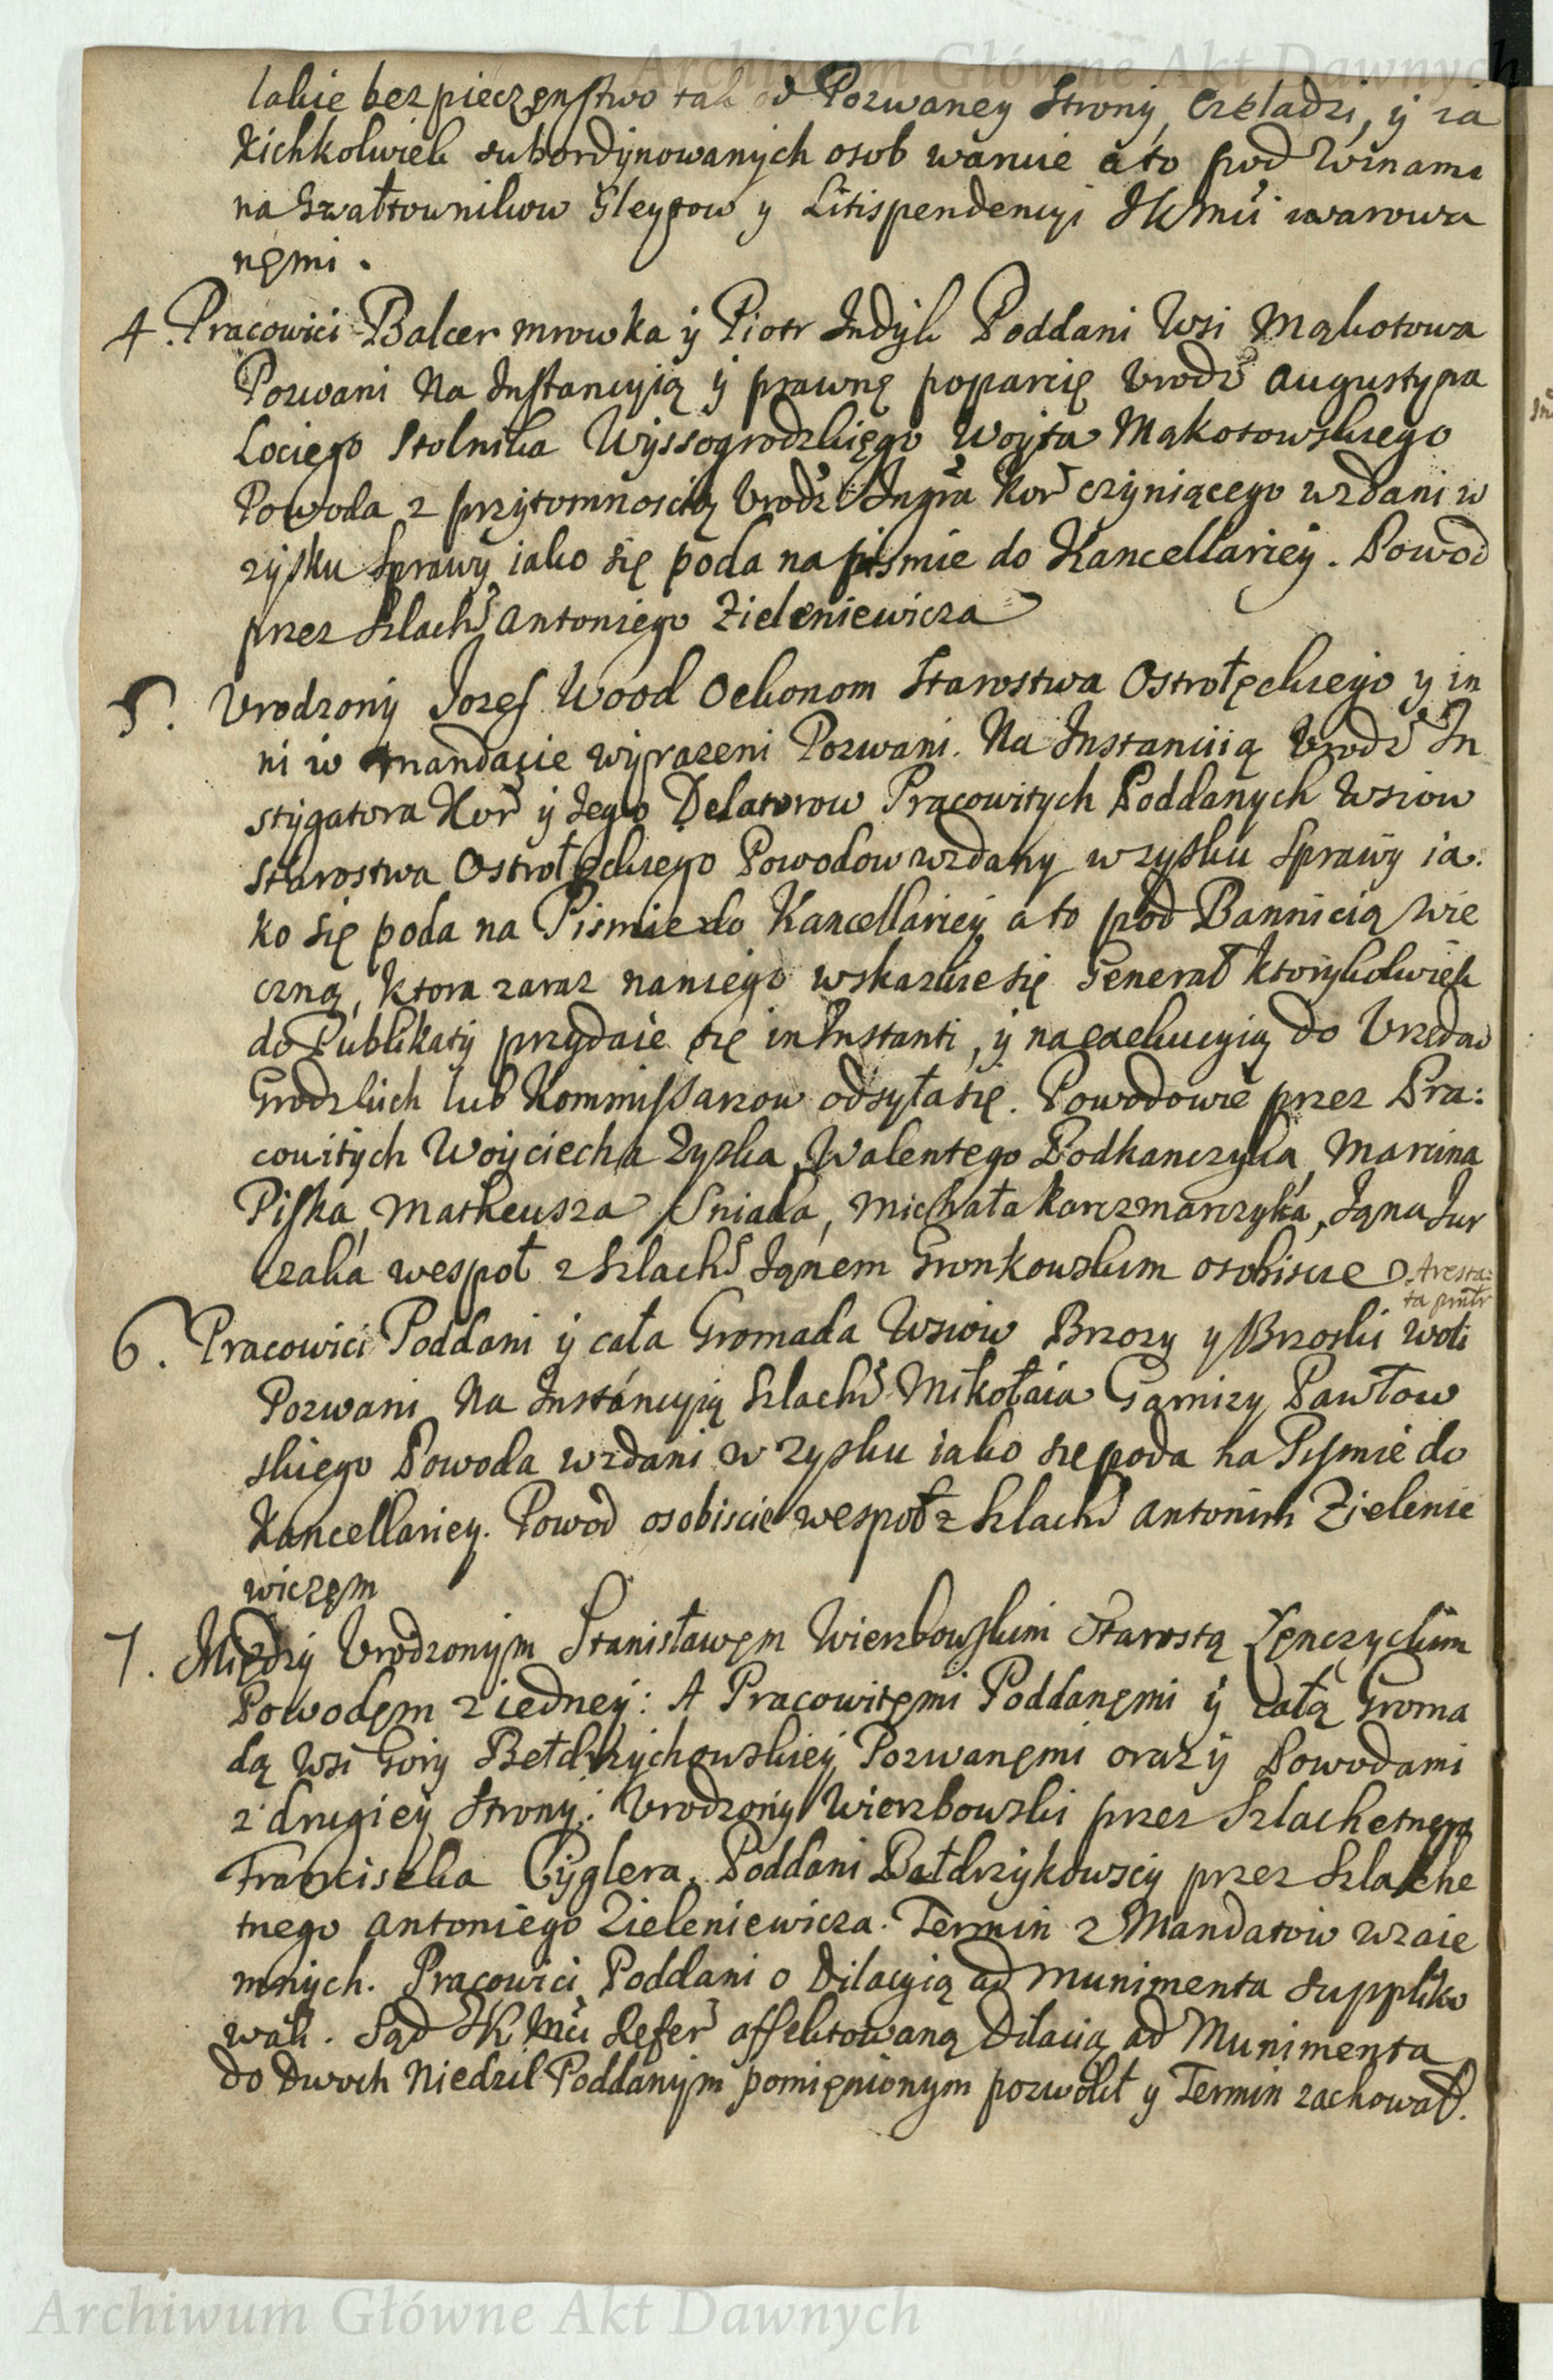 Archiwum Główne Akt Dawnych
takie bezpieczęnstwo tak od Pozwaney Strony, Czeladzi, y ia
kichkolwiek subordynowanych osob waruie a to pod Winami
na Gwałtownikow Gleytow y Litispendencyi JKMci warowa
nęmi.
4. Pracowici Balcer Mrowka y Piotr Jndyk Poddani Wsi Mąkotowa
Pozwani Na Jnstancyią y prawnę poparcię Vrodz Augustyna
Lociego Stolnika Wyssogrodzkięgo Woyta Mąkotowskiego
Powoda z przytomnoscią Vrodz Jnstra Kor czyniącego wzdani w
zysku Sprawy iako się poda na pismie do Kancellariey. Powod
przez Szlach Antoniego Zieleniewicza
5. Vrodzony Jozef Wood Oekonom Starostwa Ostrołęckiego y in
ni w mandacie wyrazeni Pozwani. Na Jnstanciią Vrodz Jn
stygatora Kor y Jego Delatorow Pracowitych Poddanych Wsiow
Starostwa Ostrołęckiego Powodow wzdany w zysku Sprawy ia:
ko się poda na Pismie do Kancellariey a to pod Bannicią Wie
czną, ktora zaraz na niego wskazuie się Generał ktorykolwiek
do Publikaty przydaie się in Instanti, y na exekucyią do Vrzędow
Grodzkich lub Kommissarzow odsyła się. Powodowie przez Pra:
cowitych Woyciecha Zyska, Walentego Podkanczyka, Marcina
Piska, Matheusza Sniada, Michała Karczmarczyka, Jana Jur
czaka wespoł z Szlach Janem Gronkowskim osobiscie
Aresta:
ta
6. Pracowici Poddani y cała Gromada Wsiow Brzozy y Brzoski Woli
Pozwani Na Jnstancyią Szlach Mikołaia Garnizy Pawłow
skiego Powoda wzdani w zysku iako się poda na Pismie do
Kancellariey. Powod osobiscie wespoł z Szlach Antonim Zielenie
wiczęm
7. Między Vrodzonym Stanisławęm Wierzbowskim Starostą Łęnczyckim
Powodęm z iedney: A Pracowitęmi Poddanęmi y całą Groma
dą Wsi Gory Bełdrzychowskiey Pozwanęmi oraz y Powodami
z drugiey Strony: Vrodzony Wierzbowski przez Szlachetnego
Franciszka Cyglera, Poddani Bałdrzykowscy przez Szlache
tnego Antoniego Zieleniewicza. Termin z Mandatow wzaie
mnych. Pracowici Poddani o Dilacyią ad Munimenta suppliko
wali. Sąd JKMci Refer affektowaną Dilacią ad Munimenta
do Dwoch Niedziel Poddanym pomięnionym pozwolił y Termin zachował.
Archiwum Główne Akt Dawnych